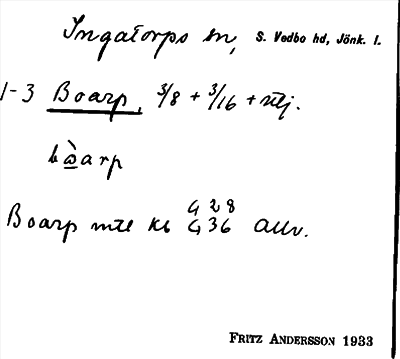 Ingatorps sn, S. Vedbo hd, Jönk. l.
1-3 Boarp, 3/8 + 3/16 + utj.
bòarp
G 28
Boarp mtl kb G 36 Allv.
FRITZ ANDERSSON 1933